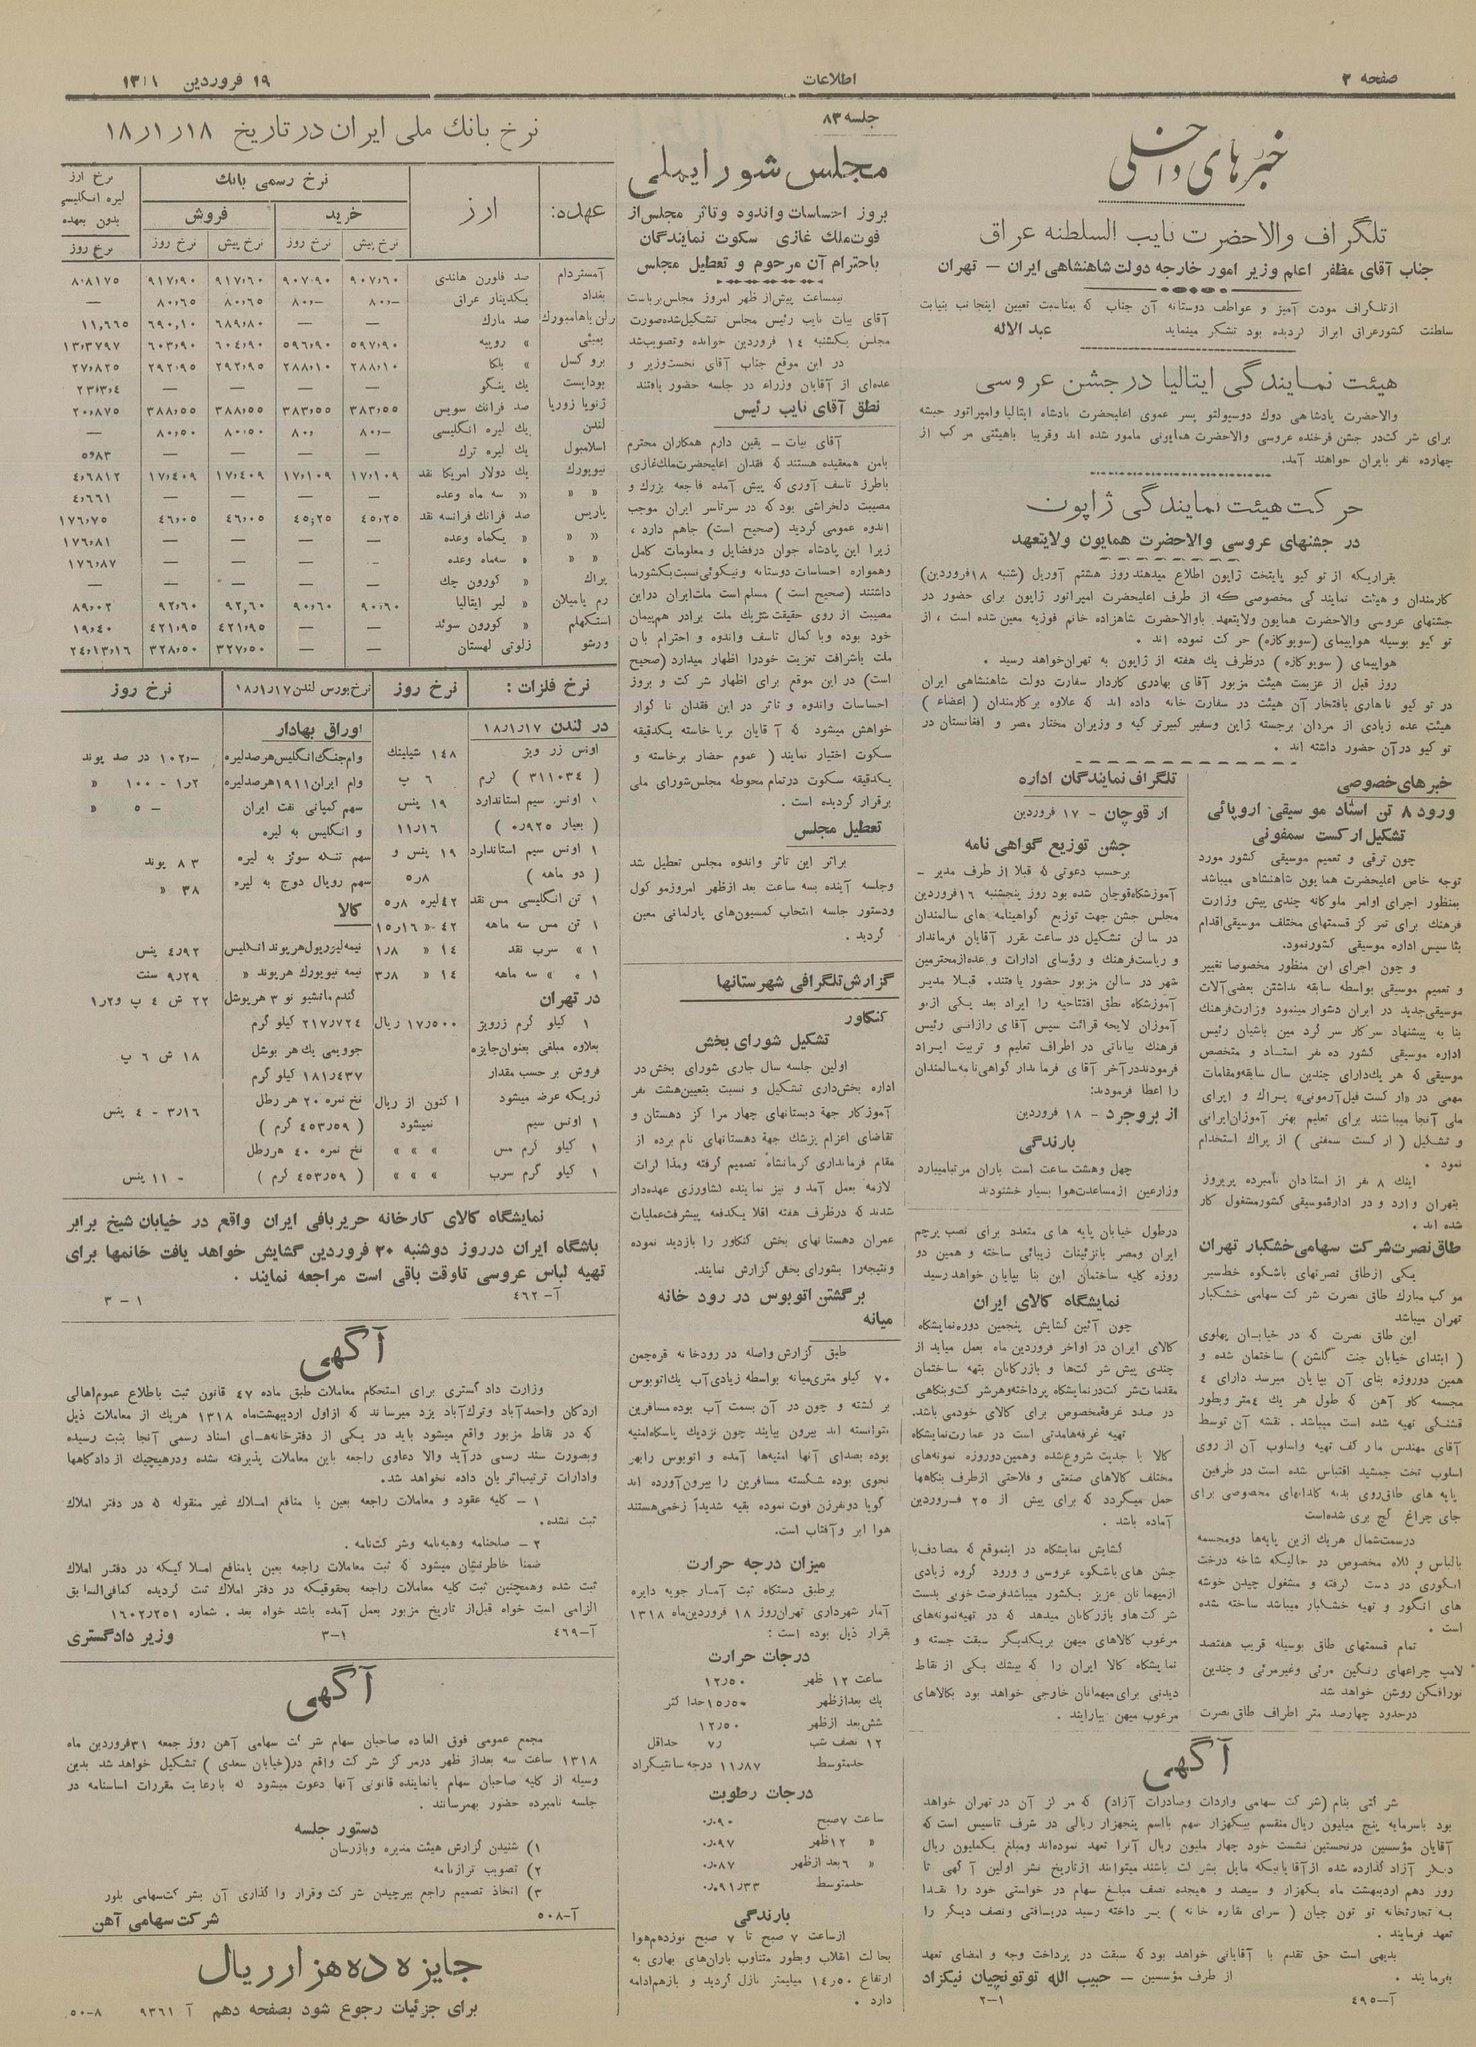 صفحه ۲
اطلاعات
۱۹ فروردین
خبرهای داخلی
تلگراف والاحضرت نایب السلطنه عراق
جناب آقای مظفر اعلم وزیر امور خارجه دولت شاهنشاهی ایران — تهران
ازتلگراف مودت آمیز و عواطف دوستانه آن جناب که بمناسبت تعیین اینجانب بنیابت
سلطنت کشورعراق ابراز گردیده بود تشکر مینماید عبد الاله
هیئت نمایندگی ایتالیا در جشن عروسی
والاحضرت پادشاهی دوك دوسپولتو پسر عموی اعلیحضرت پادشاه ایتالیا وامپراتور حبشه
برای شرکت در جشن فرخنده عروسی والاحضرت همایونی مامور شده اند وقریبا باهیئتی مرکب از
چهارده نفر بایران خواهند آمد.
حرکت هیئت نمایندگی ژاپون
در جشنهای عروسی والاحضرت همایون ولایتعهد
بقراریکه از توکیو پایتخت ژاپون اطلاع میدهند روز هشتم آوریل (شنبه ۱۸فروردین)
کارمندان و هیئت نمایندگی مخصوصی که از طرف اعلیحضرت امپراتور ژاپون برای حضور در
جشنهای عروسی والاحضرت همایون ولایتعهد باوالاحضرت شاهزاده خانم فوزیه معین شده است ، از
توکیو بوسیله هواپیمای (سویوکازه) حرکت نموده اند .
هواپیمای (سویوکازه) درظرف یك هفته از ژاپون به تهران‌خواهد رسید .
روز قبل از عزیمت هیئت مزبور آقای بهادری کاردار سفارت دولت شاهنشاهی ایران
در توکیو ناهاری بافتخار آن هیئت در سفارت خانه داده اند که علاوه برکارمندان (اعضاء)
هیئت عده زیادی از مردان برجسته ژاپن وسفیر کبیرترکیه و وزیران مختار مصر و افغانستان در
توکیو درآن حضور داشته اند .
خبرهای خصوصی
ورود ۸ تن استاد موسیقی اروپائی
تشکیل ارکست سمفونی
چون ترقی و تعمیم موسیقی کشور مورد
توجه خاص اعلیحضرت همایون شاهنشاهی میباشد
بمنظور اجرای اوامر ملوکانه چندی پیش وزارت
فرهنك برای تمرکز قسمتهای مختلف موسیقی‌اقدام
بتاسیس اداره موسیقی کشورنمود.
و چون اجرای این منظور مخصوصا تغییر
و تعمیم موسیقی بواسطه سابقه نداشتن بعضی‌آلات
موسیقی‌جدید در ایران دشوار مینمود وزارت‌فرهنك
بنا به پیشنهاد سرکار سرگرد مین باشیان رئیس
اداره موسیقی کشور ده نفر استاد و متخصص
موسیقی که هریك‌دارای چندین سال سابقه‌ومقامات
مهمی در «ارکست فیل‌آرمونی» پراك و اپرای
ملی آنجا میباشند برای تعلیم بهتر آموزان‌ایرانی
و تشکیل (ارکست سمفنی) از پراك استخدام
نمود .
اینك ۸ نفر از استادان نامبرده پریروز
بتهران وارد و در اداره‌موسیقی کشورمشغول کار
شده اند .
طاق نصرت شرکت سهامی خشکبار تهران
یکی ازطاق نصرتهای باشکوه خط‌سیر
موکب مبارك طاق نصرت شرکت سهامی خشکبار
تهران میباشد
این طاق نصرت که در خیابان پهلوی
(ابتدای خیابان جنت گلشن) ساختمان شده و
همین دوروزه بنای آن بپایان میرسد دارای ۴
مجسمه گاو آهن که طول هر یك ٤متر وبطور
قشنگی تهیه شده است میباشد. نقشه آن توسط
آقای مهندس مارکف تهیه واسلوب آن از روی
اسلوب تخت جمشید اقتباس شده است درطرفین
پایه های طاق‌روی بدنه گلدانهای مخصوصی برای
جای چراغ گچ بری شده‌است
درسمت‌شمال هریك ازین پایه‌ها دومجسمه
بالباس و کلاه مخصوص در حالیکه شاخه درخت
انگوری در دست گرفته و مشغول چیدن خوشه
های انگور و تهیه خشکبار میباشد ساخته شده
است .
تمام قسمتهای طاق بوسیله قریب هفتصد
لامپ چراغهای رنگین مرئی وغیرمرئی و چندین
نورافکن روشن خواهد شد
درحدود چهارصد متر اطراف طاق‌نصرت
تلگراف نمایندگان اداره
از قوچان - ۱۷ فروردین
جشن توزیع گواهی نامه
برحسب دعوتی که قبلا از طرف مدیر -
آموزشگاه‌قوچان شده بود روز پنجشنبه ۱۶فروردین
مجلس جشن جهت توزیع گواهینامه های سالمندان
در سالن تشکیل در ساعت مقرر آقایان فرماندار
و ریاست‌فرهنك و رؤسای ادارات و عده‌ازمحترمین
شهر در سالن مزبور حضور یافتند. قبلا مدیر
آموزشگاه نطق افتتاحیه را ایراد بعد یکی ازنو
آموزان لایحه قرائت سپس آقای رازانی رئیس
فرهنك بیاناتی در اطراف تعلیم و تربیت ایراد
فرمودند.درآخر آقای فرماندار گواهی‌نامه‌سالمندان
را اعطا فرمودند:
از بروجرد - ۱۸ فروردین
بارندگی
چهل وهشت ساعت است باران مرتبامیبارد
وزارعین ازمساعدت‌هوا بسیار خشنودند
درطول خیابان پایه های متعدد برای نصب پرچم
ایران ومصر باتزئینات زیبائی ساخته و همین دو
روزه کلیه ساختمان این بنا بپایان خواهد رسید
نمایشگاه کالای ایران
چون آئین گشایش پنجمین دوره نمایشگاه
کالای ایران در اواخر فروردین ماه بعمل میاید از
چندی پیش شرکت‌ها و بازرگانان بتهه ساختمان
مقدمات‌شرکت در نمایشگاه پرداخته‌وهرشرکت‌وبنگاهی
در صدد غرفهٔ‌مخصوص برای کالای خودمی باشد.
تهیه غرفه‌هامدتی است در عمارت‌نمایشگاه
کالا با جدیت شروع‌شده وهمین‌دوروزه نمونه‌های
مختلف کالاهای صنعتی و فلاحتی ازطرف بنگاهها
حمل میگردد که برای پیش از ۲۵ فروردین
آماده باشد .
گشایش نمایشگاه در اینموقع که مصادف‌با
جشن های‌باشکوه عروسی و ورود گروه زیادی
ازمیهمانان عزیز بکشور میباشدفرصت خوبی بدست
شرکت‌هاو بازرگانان میدهد که در تهیه‌نمونه‌های
مرغوب کالاهای میهن بریکدیگر سبقت جسته و
نمایشگاه کالا ایران را که بیشك یکی از نقاط
دیدنی برای‌میهمانان خارجی خواهد بود بکالاهای
مرغوب میهن بیارایند .
آگهی
شرکتی بنام (شرکت سهامی واردات وصادرات آزاد) که مرکز آن در تهران خواهد
بود باسرمایه پنج میلیون ریال منقسم بیکهزار سهم بااسم پنجهزار ریالی در شرف تاسیس است که
آقایان مؤسسین درنخستین نشست خود چهار ملیون ریال آنرا تعهد نموده‌اند ومبلغ یکملیون ریال
دیگر آزاد گذارده شده ازآقایانیکه مایل بشرکت باشند میتوانند ازتاریخ نشر اولین آگهی تا
روز دهم اردیبهشت ماه یکهزار و سیصد و هیجده نصف مبلغ سهام در خواستی خود را نقدا
به تجارتخانه توتون چیان (سرای نقاره خانه) پرداخته رسید دریافتی ونصف دیگر را
تعهد فرمایند .
بدیهی است حق تقدم با آقایانی خواهد بود که سبقت در پرداخت وجه و امضای تعهد
بفرمایند . از طرف مؤسسین — حبیب الله توتونچیان نیکزاد
آ-۴۹۵ ۲-۱
جلسه ۸۳
مجلس شورایملی
بروز احساسات واندوه وتاثر مجلس از
فوت ملك غازی سکوت نمایندگان
باحترام آن مرحوم و تعطیل مجلس
نیمساعت پیش‌از ظهر امروز مجلس بریاست
آقای بیات نایب رئیس مجلس تشکیل‌شده‌صورت
مجلس یکشنبه ١٤ فروردین خوانده وتصویب‌شد
در این موقع جناب آقای نخست‌وزیر و
عده‌ای از آقایان وزراء در جلسه حضور یافتند
نطق آقای نایب رئیس
آقای بیات - یقین دارم همکاران محترم
بامن همعقیده هستند که فقدان اعلیحضرت‌ملك‌غازی
باطرز تاسف آوری که پیش آمده فاجعه بزرك و
مصیبت دلخراشی بود که در سرتاسر ایران موجب
اندوه عمومی گردید (صحیح است) جاهم دارد ،
زیرا این پادشاه جوان درفضایل و معلومات کامل
وهمواره احساسات دوستانه ونیکوئی‌نسبت‌بکشورما
داشتند (صحیح است) مسلم است ملت‌ایران دراین
مصیبت از روی حقیقت شریك ملت برادر هم‌پیمان
خود بوده وبا کمال تاسف واندوه و احترام بان
ملت باشرافت تعزیت خودرا اظهار میدارد (صحیح
است) در این موقع برای اظهار شرکت و بروز
احساسات واندوه و تاثر در این فقدان ناگوار
خواهش میشود که آقایان برپا خاسته یکدقیقه
سکوت اختیار نمایند (عموم حضار برخاسته و
یکدقیقه سکوت درتمام محوطه مجلس‌شورای ملی
برقرار گردیده است .
تعطیل مجلس
براثر این تاثر واندوه مجلس تعطیل شد
وجلسه آینده بسه ساعت بعد ازظهر امروزموکول
ودستور جلسه انتخاب کمسیون‌های پارلمانی معین
گردید .
گزارش تلگرافی شهرستانها
کنگاور
تشکیل شورای بخش
اولین جلسه سال جاری شورای بخش در
اداره بخش‌داری تشکیل و نسبت بتعیین‌هشت نفر
آموزگار جهة دبستانهای چهار مرکز دهستان و
تقاضای اعزام پزشك جهة دهستانهای نام برده از
مقام فرمانداری کرمانشاه تصمیم گرفته ومذاکرات
لازمه بعمل آمد و نیز نماینده کشاورزی عهده‌دار
شدند که درظرف هفته اقلا یکدفعه پیشرفت‌عملیات
عمران دهستانهای بخش کنگاور را بازدید نموده
ونتیجه‌را بشورای بخش گزارش نمایند.
برگشتن اتوبوس در رود خانه
میانه
طبق گزارش واصله در رودخانه قره‌چمن
۷۰ کیلو متری‌میانه بواسطه زیادی‌آب یك‌اتوبوس
برگشته و چون در آن بسمت آب بوده مسافرین
نتوانسته اند بیرون بیایند چون نزدیك پاسگاه‌امنیه
بوده بصدای آنها امنیه‌ها آمده و اتوبوس رابهر
نحوی بوده شکسته مسافرین را بیرون‌آورده اند
گویا دونفرزن فوت نموده بقیه شدیداً زخمی‌هستند
هوا ابر وآفتاب است.
میزان درجه حرارت
برطبق دستگاه ثبت آمار جویه دایره
آمار شهرداری تهران‌روز ۱۸ فروردین‌ماه ۱۳۱۸
بقرار ذیل بوده است :
درجات حرارت
ساعت ۱۲ ظهر ۱۲٫۵۰
یك بعدازظهر ۱۵٫۵۰ حداکثر
شش بعد ازظهر ۱۲٫۵۰
۱۲ نصف شب ۷٫ حداقل
حدمتوسط ۱۱٫۸۷ درجه سانتیگراد
درجات رطوبت
ساعت ۷صبح ۰٫۹۰
« ۱۲ظهر ۰٫۹۷
« ۶بعد ازظهر ۰٫۸۷
حدمتوسط ۰٫۹۱٫۳۳
بارندگی
ازساعت ۷ صبح تا ۷ صبح نوزدهم‌هوا
بحالت انقلاب وبطور متناوب باران‌های بهاری به
ارتفاع ۱۴٫۵۰ میلیمتر نازل گردید و بازهم‌ادامه
دارد .
نرخ بانك ملی ایران در تاریخ ۱۸٫۱٫۱۸
عهده: ارز نرخ رسمی بانك نرخ ارز لیره انگلیسی بدون بعهده
خرید فروش
نرخ پیش نرخ روز نرخ پیش نرخ روز نرخ روز
آمستردام صد فلورن هلندی ۹۰۷٫۶۰ ۹۰۷٫۹۰ ۹۱۷٫۶۰ ۹۱۷٫۹۰ ۸٫۸۱۷۵
بغداد یکدینار عراق ۸۰٫- ۸۰٫- ۸۰٫۶۵ ۸۰٫۶۵ —
صد مارك — — ۶۸۹٫۸۰ ۶۹۰٫۱۰ ۱۱٫۶۶۵
بمبئی « روپیه ۵۹۷٫۹۰ ۵۹۶٫۹۰ ۶۰۴٫۹۰ ۶۰۳٫۹۰ ۱۳٫۳۷۹۷
بروکسل « بلگا ۲۸۸٫۱۰ ۲۸۸٫۱۰ ۲۹۲٫۹۵ ۲۹۲٫۹۵ ۲۷٫۸۲۵
بوداپست یك پنگو — — — — ۲۳٫۳٫۴
ژنویا زوریا صد فرانك سویس ۳۸۳٫۵۵ ۳۸۳٫۵۵ ۳۸۸٫۵۵ ۳۸۸٫۵۵ ۲۰٫۸۷۵
لندن یك لیره انگلیسی ۸۰٫- ۸۰٫ ۸۰٫۵۰ ۸۰٫۵۰ —
اسلامبول یك لیره ترك — — — — ۵٫۸۳
نیویورك یك دولار امریکا نقد ۱۷٫۱۰۹ ۱۷٫۱۰۹ ۱۷٫۴۰۹ ۱۷٫۴۰۹ ۴٫۶۸۱۲
« « « سه ماه وعده — — — — ۴٫۶۶۱
پاریس صد فرانك فرانسه نقد ۴۵٫۲۵ ۴۵٫۲۵ ۴۶٫۰۵ ۴۶٫۰۵ ۱۷۶٫۷۵
« « « یکماه وعده — — — — ۱۷۶٫۸۱
« « « سه‌ماه وعده — — — — ۱۷۶٫۸۷
پراك « کورون چك — — — — —
رم یامیلان « لیر ایتالیا ۹۰٫۶۰ ۹۰٫۶۰ ۹۲٫۶۰ ۹۲٫۶۰ ۸۹٫۰۲
استکهلم « کورون سوئد — — ۴۲۱٫۹۵ ۴۲۱٫۹۵ ۱۹٫۴۰
ورشو زلوتی لهستان — — ۳۲۷٫۵۰ ۳۲۸٫۵۰ ۲۴٫۱۳٫۱۶
نرخ فلزات : نرخ روز نرخ بورس لندن ۱۸٫۱٫۱۷ نرخ روز
در لندن ۱۸٫۱٫۱۷ اوراق بهادار
اونس زر ویژ ۱۴۸ شیلینك وام‌جنگ‌انگلیس هرصدلیره ۱۰۲٫- در صد پوند
(۳۱۱۰۳۴) گرم ۶ پ وام ایران ۱۹۱۱ هرصدلیره ۱۰۰ - ۱٫۲ «
۱ اونس سیم استاندارد ۱۹ پنس سهم کمپانی نفت ایران ۵ - «
(بعیار ۰٫۹۲۵) ۱۱٫۱۶ و انگلیس به لیره
۱ اونس سیم استاندارد ۱۹ پنس و سهم تنگه سوئز به لیره ۸۳ پوند
(دو ماهه) ۵٫۸ سهم رویال دوچ به لیره ۳۸ «
۱ تن انگلیسی مس نقد ۴۲لیره ۵٫۸ کالا
۱ تن مس سه ماهه ۴۲ - « ۱۵٫۱۶
۱ « سرب نقد ۱۴ « ۱٫۸ نیمه لیورپول هرپوند انگلیس ۴٫۹۲ پنس
۱ « « سه ماهه ۱۴ « ۳٫۸ نیمه نیویورك هرپوند « ۹٫۲۹ سنت
در تهران گندم مانشیو نو ۳ هر بوشل ۲۲ ش ۴ پ و ۱٫۲
۱ کیلو گرم زرویژ ۱۷٫۵۰۰ ریال ۲۱۷٫۷۲۴ کیلو گرم
بعلاوه مبلغی بعنوان‌جایزه جوویمی یك هر بوشل ۱۸ ش ۶ پ
فروش بر حسب مقدار ۱۸۱٫۴۳۷ کیلو گرم
زریکه عرضه میشود اکنون از ریال نخ نمره ۲۰ هر رطل ۳٫۱۶ - ۴ پنس
۱ اونس سیم نمیشود (۴۵۳٫۵۹ گرم)
۱ کیلو گرم مس « « « نخ نمره ۴۰ هررطل
۱ کیلو گرم سرب « « « (۴۵۳٫۵۹ گرم) ۱۱ - پنس
نمایشگاه کالای کارخانه حریربافی ایران واقع در خیابان شیخ برابر
باشگاه ایران درروز دوشنبه ۲۰ فروردین گشایش خواهد یافت خانمها برای
تهیه لباس عروسی تاوقت باقی است مراجعه نمایند .
آ-۴۶۲ ۱-۳
آگهی
وزارت دادگستری برای استحکام معاملات طبق ماده ۴۷ قانون ثبت باطلاع عموم‌اهالی
اردکان واحمدآباد وترك‌آباد یزد میرساند که ازاول اردیبهشت‌ماه ۱۳۱۸ هریك از معاملات ذیل
که در نقاط مزبور واقع میشود باید در یکی از دفترخانه‌های اسناد رسمی آنجا بثبت رسیده
وبصورت سند رسمی درآید والا دعاوی راجعه باین معاملات پذیرفته نشده ودرهیچیك از دادگاهها
وادارات ترتیب‌اثر بان داده نخواهد شد.
۱ - کلیه عقود و معاملات راجعه بعین یا منافع املاك غیر منقوله که در دفتر املاك
ثبت نشده.
۲ - صلحنامه وهبه‌نامه وشرکت‌نامه .
ضمنا خاطرنشان میشود که ثبت معاملات راجعه بعین یامنافع املاکیکه در دفتر املاك
ثبت شده وهمچنین ثبت کلیه معاملات راجعه بحقوقیکه در دفتر املاك ثبت گردیده کمافی‌السابق
الزامی است خواه قبل‌از تاریخ مزبور بعمل آمده باشد خواه بعد . شماره ۱۶۰۲٫۲۵۱
آ-۴۶۹ ۳-۱ وزیر دادگستری
آگهی
مجمع عمومی فوق العاده صاحبان سهام شرکت سهامی آهن روز جمعه ۳۱فروردین ماه
۱۳۱۸ ساعت سه بعداز ظهر درمرکز شرکت واقع در(خیابان سعدی) تشکیل خواهد شد بدین
وسیله از کلیه صاحبان سهام یانماینده قانونی آنها دعوت میشود که بارعایت مقررات اساسنامه در
جلسه نامبرده حضور بهمرسانند .
دستور جلسه
۱) شنیدن گزارش هیئت مدیره وبازرسان
۲) تصویب ترازنامه
۳) اتخاذ تصمیم راجع ببرچیدن شرکت وقرار واگذاری آن بشرکت‌سهامی بلور
آ-۵۰۸ شرکت سهامی آهن
جایزه ده هزار ریال
برای جزئیات رجوع شود بصفحه دهم آ ۹۳۶۱ ۸-۵۰